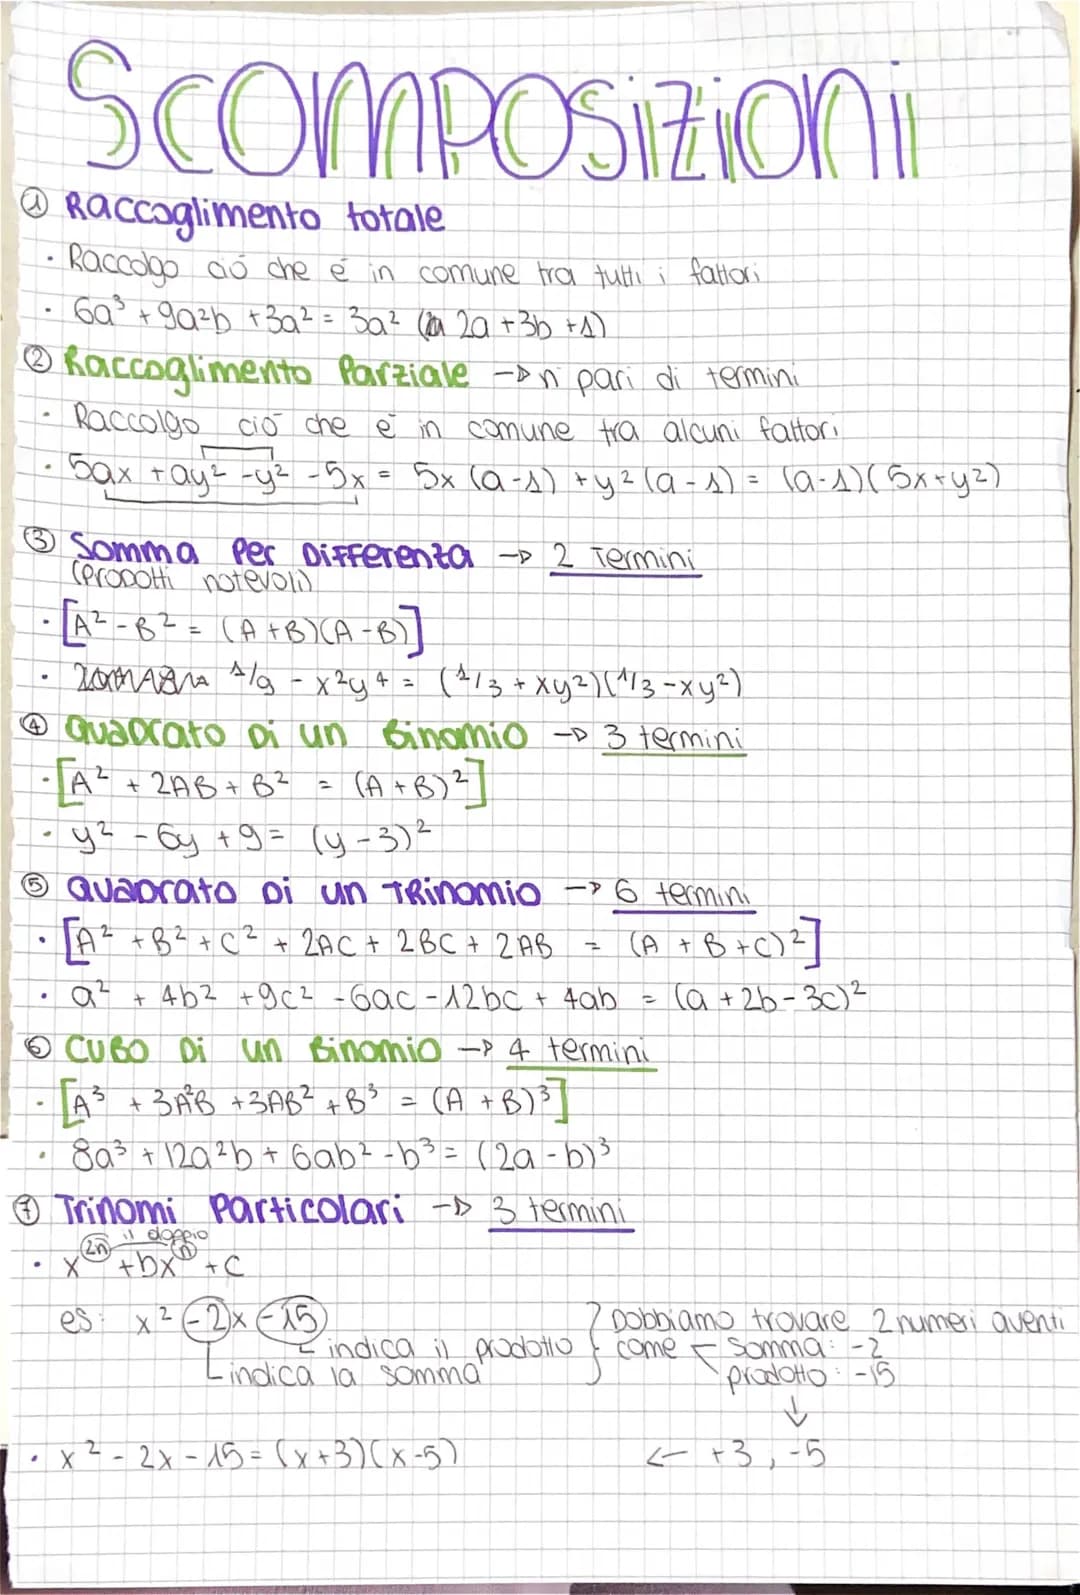 SCOMPOSIZIONI
① Raccoglimento totale
· Raccolgo ciò che é in comune tra tutti i fattori
· 6a³ + 9a²b + 3a² = 3a² (2a + 3b + 1)
② Raccoglimento Parziale → n pari di termini
· Raccolgo ciò che è in comune tra alcuni fattori
· 5ax + ay² - y² - 5x = 5x (a-1) + y² (a - 1) = (a-1)(5x+y²)
③ Somma Per Differenza → 2 Termini
(Prodotti notevoli)
· [A² - B² = (A+B)(A-B)]
· 1/9 - x²y⁴ = (1/3 + xy²)(1/3 - xy²)
④ Quadrato Di un Binomio → 3 termini
· [A² + 2AB + B² = (A + B)²]
· y² - 6y + 9 = (y - 3)²
⑤ Quadrato Di un TRinomio → 6 termini
· [A² + B² + C² + 2AC + 2BC + 2AB = (A + B + C)²]
· a² + 4b² + 9c² - 6ac - 12bc + 4ab = (a + 2b - 3c)²
⑥ CUBO Di un Binomio → 4 termini
· [A³ + 3A²B + 3AB² + B³ = (A + B)³]
· 8a³ + 12a²b + 6ab² - b³ = (2a - b)³
⑦ Trinomi Particolari → 3 termini
il doppio
· x²ⁿ + bxⁿ + C
es: x² - 2x - 15 } Dobbiamo trovare 2 numeri aventi
indica il prodotto come Somma: -2
indica la somma prodotto: -15
↓
· x² - 2x - 15 = (x+3)(x-5) ← +3, -5